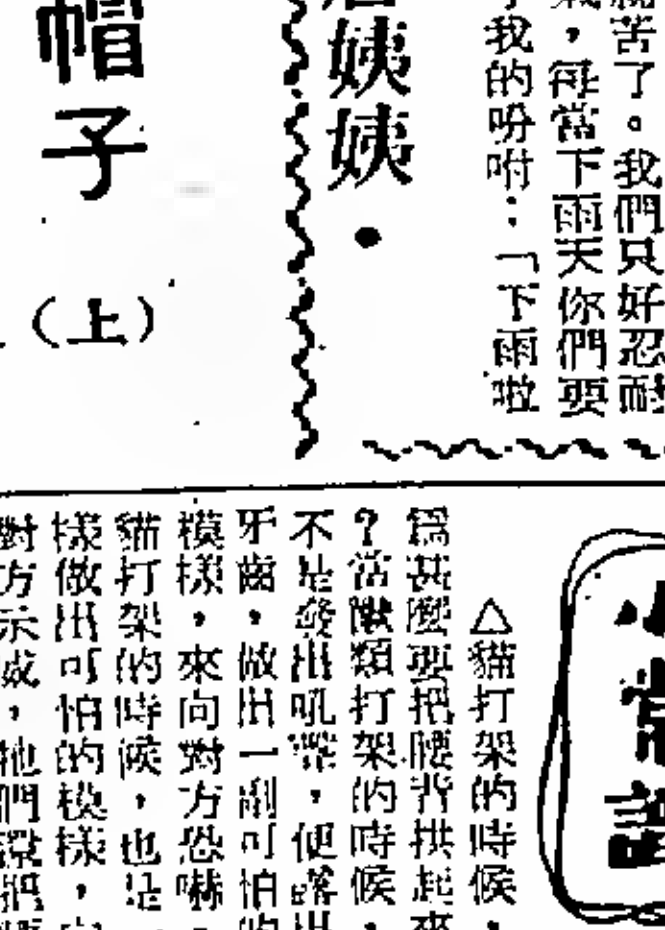 苦了。我們只好忍耐
，每當下雨天你們要
我的吩咐：「下雨啦
姨姨•
帽子
（上）
小常識
△貓打架的時候，
爲甚麼要把腰背拱起來
？當獸類打架的時候，
不是發出吼聲，便露出
牙齒，做出一副可怕的
模樣，來向對方恐嚇。
貓打架的時候，也是
樣做出可怕的模樣，向
對方示威，牠們還把